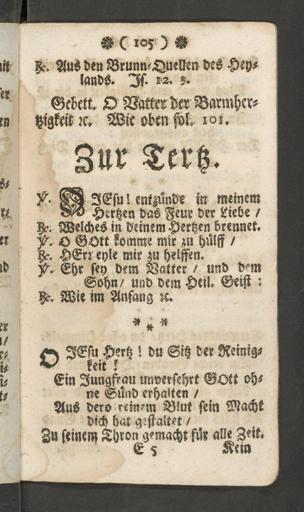 ❋ ( 105 ) ❋
℟. Aus den Brunn-Quellen des Hey-
lands. Js. 12. 3.
Gebett. O Vatter der Barmher-
tzigkeit ꝛc. Wie oben fol. 101.
Zur Tertz.
℣. O JEsu! entzünde in meinem
Hertzen das Feur der Liebe /
℟. Welches in deinem Hertzen brennet.
℣. O GOtt komme mir zu hülff /
℟. HErr eyle mir zu helffen.
℣. Ehr sey dem Vatter / und dem
Sohn / und dem Heil. Geist :
℟. Wie im Anfang ꝛc.
* * *
O JEsu Hertz ! du Sitz der Reinig-
keit !
Ein Jungfrau unversehrt GOtt oh-
ne Sünd erhalten /
Aus dero reinem Blut sein Macht
dich hat gestaltet /
Zu seinem Thron gemacht für alle Zeit.
E 5 Kein